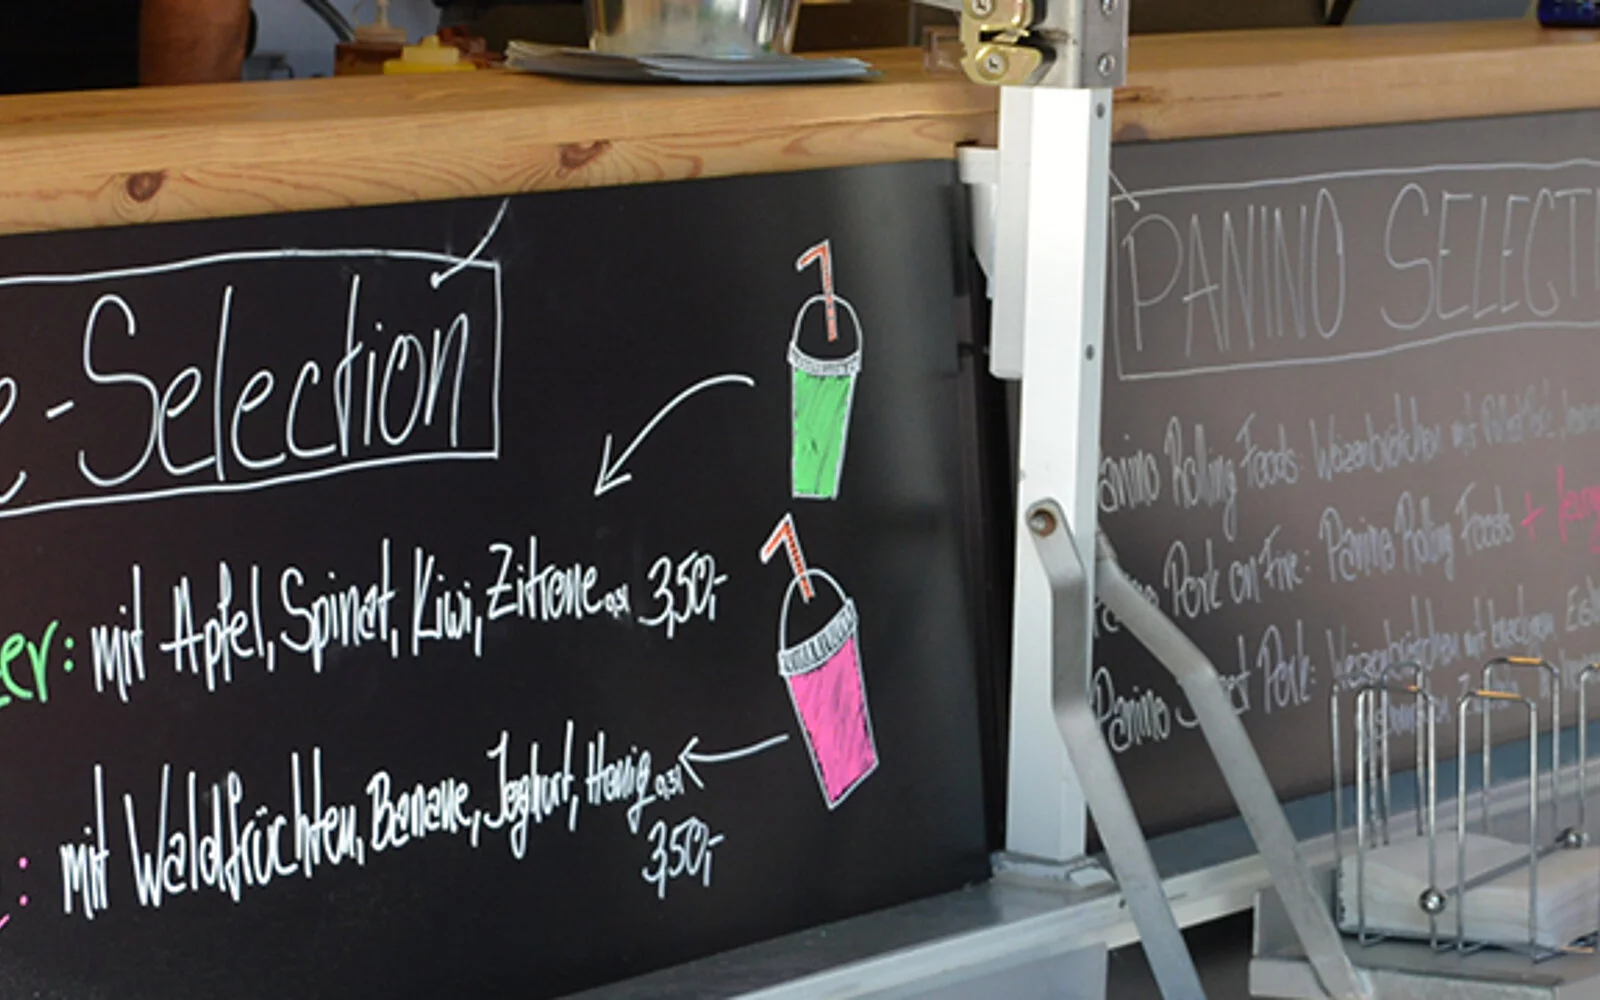 e-Selection
er: mit Apfel, Spinat, Kiwi, Zitrone 0,3l 3,50,-
: mit Waldfrüchten, Banane, Joghurt, Honig 0,3l
3,50,-
PANINO SELECTI
Panino Rolling Foods: Weizenbrötchen mit
Pork on Fire: Panino Rolling Foods +
Panino Pork: Weizenbrötchen mit